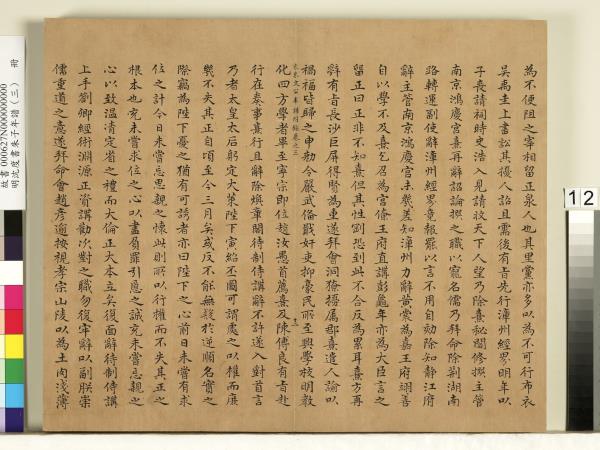 為不便阻之宰相留正泉人也其里黨亦多以為不可行布衣
吳禹圭上書訟其擾人詔且需後有旨先行漳州經界明年以
子喪請祠時史浩入見請收天下人望乃除熹秘閣修撰主管
南京鴻慶宮熹再辭詔論撰之職以寵名儒乃拜命除荊湖南
路轉運副使辭漳州經界竟報罷以言不用自劾除知靜江府
辭主管南京鴻慶宮未幾差知潭州力辭黃裳為嘉王府翊善
自以學不及熹乞召為宮僚王府直講彭龜年亦為大臣言之
留正曰正非不知熹但其性剛恐到此不合反為累耳熹方再
辭有旨長沙巨屏得賢為重遂拜命會洞獠擾屬郡熹遣人諭以
禍福皆歸之申勑令嚴武備戢奸吏抑豪民所至興學校明教
化四方學者畢至寧宗即位趙汝愚首薦熹及陳傅良有旨赴
行在奏事熹行且辭除煥章閣待制侍講辭不許遂入對首言
乃者太皇太后躬定大策陛下寅紹丕圖可謂處之以權而庶
幾不失其正自頃至今三月矣或反不能無疑於逆順名實之
際竊為陛下憂之猶有可諉者亦曰陛下之心前日未嘗有求
位之計今日未嘗忘思親之懷此則所以行權而不失其正之
根本也充未嘗求位之心以盡負罪引慝之誠充未嘗忘親之
心以致溫凊定省之禮而大倫正大本立矣復面辭待制侍講
上手劄卿經術淵源正資講勸次對之職勿復牢辭以副朕崇
儒重道之意遂拜命會趙彥逾按視孝宗山陵以為土肉淺薄
故書000627N000000000
明沈度書朱子年譜（三） 冊
12